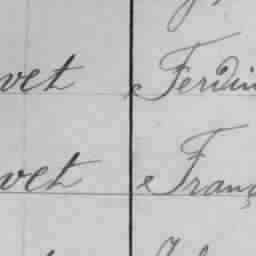 vet Ferdin
vet Franç